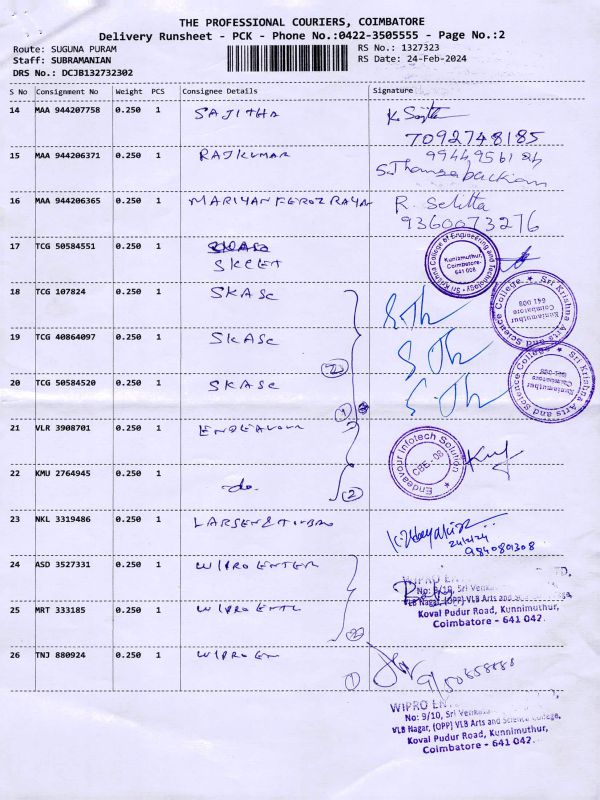 THE PROFESSIONAL COURIERS, COIMBATORE
Delivery Runsheet - PCK - Phone No.:0422-3505555 - Page No.:2
Route: SUGUNA PURAM
RS No.: 1327323
Staff: SUBRAMANIAN
RS Date: 24-Feb-2024
DRS No.: DCJB132732302
S No Consignment No Weight PCS Consignee Details Signature
14 MAA 944207758 0.250 1 SAJITHA
7092748185
15 MAA 944206371 0.250 1 RAJKUMAR
S.Thangabackiam
16 MAA 944206365 0.250 1 MARIYAN FEROZ RAYAN R. Selitta
9360073276
17 TCG 50584551 0.250 1
SKCET
Sri Krishna College of Engineering and Technology
Kunizmuthur,
Coimbatore-
641 008
18 TCG 107824 0.250 1 SKASC
Sri Krishna Arts and Science College
Kuniamuthur
Coimbatore
641 008
19 TCG 40864097 0.250 1 SKASC
20 TCG 50584520 0.250 1 SKASC
Sri Krishna Arts and Science College
Kuniamuthur
Coimbatore
641-008
21 VLR 3908701 0.250 1 ENDEAVOUR
Endeavour Infotech Solution
CBE - 08
22 KMU 2764945 0.250 1 -do- 2
23 NKL 3319486 0.250 1 LARSEN & TOUBRO
24/2/24
9840801308
24 ASD 3527331 0.250 1 WIPRO ENTER
WIPRO
No: 9/10, Sri
VLB Nagar, (OPP) VLB Arts and Science College,
25 MRT 333185 0.250 1 WIPRO ENTL
Koval Pudur Road, Kunnimuthur,
Coimbatore - 641 042.
2
26 TNJ 880924 0.250 1 WIPRO EN
1
WIPRO
No: 9/10, Sri
VLB Nagar, (OPP) VLB Arts and Science College,
Koval Pudur Road, Kunnimuthur,
Coimbatore - 641 042.